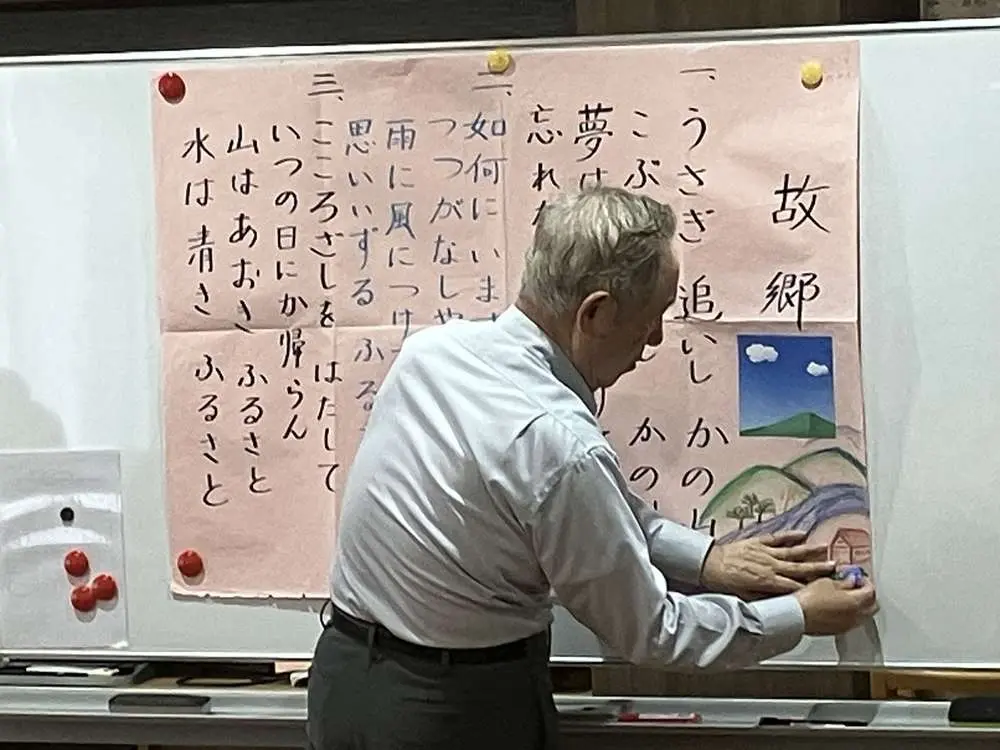 故郷
一、うさぎ 追いし かの山
こぶ し かの
夢は
忘れ
二、如何に いま
つつがなしや
雨に風につけ
思いいずる ふる
三、こころざしを はたして
いつの日にか帰らん
山はあおき ふるさと
水は清き ふるさと